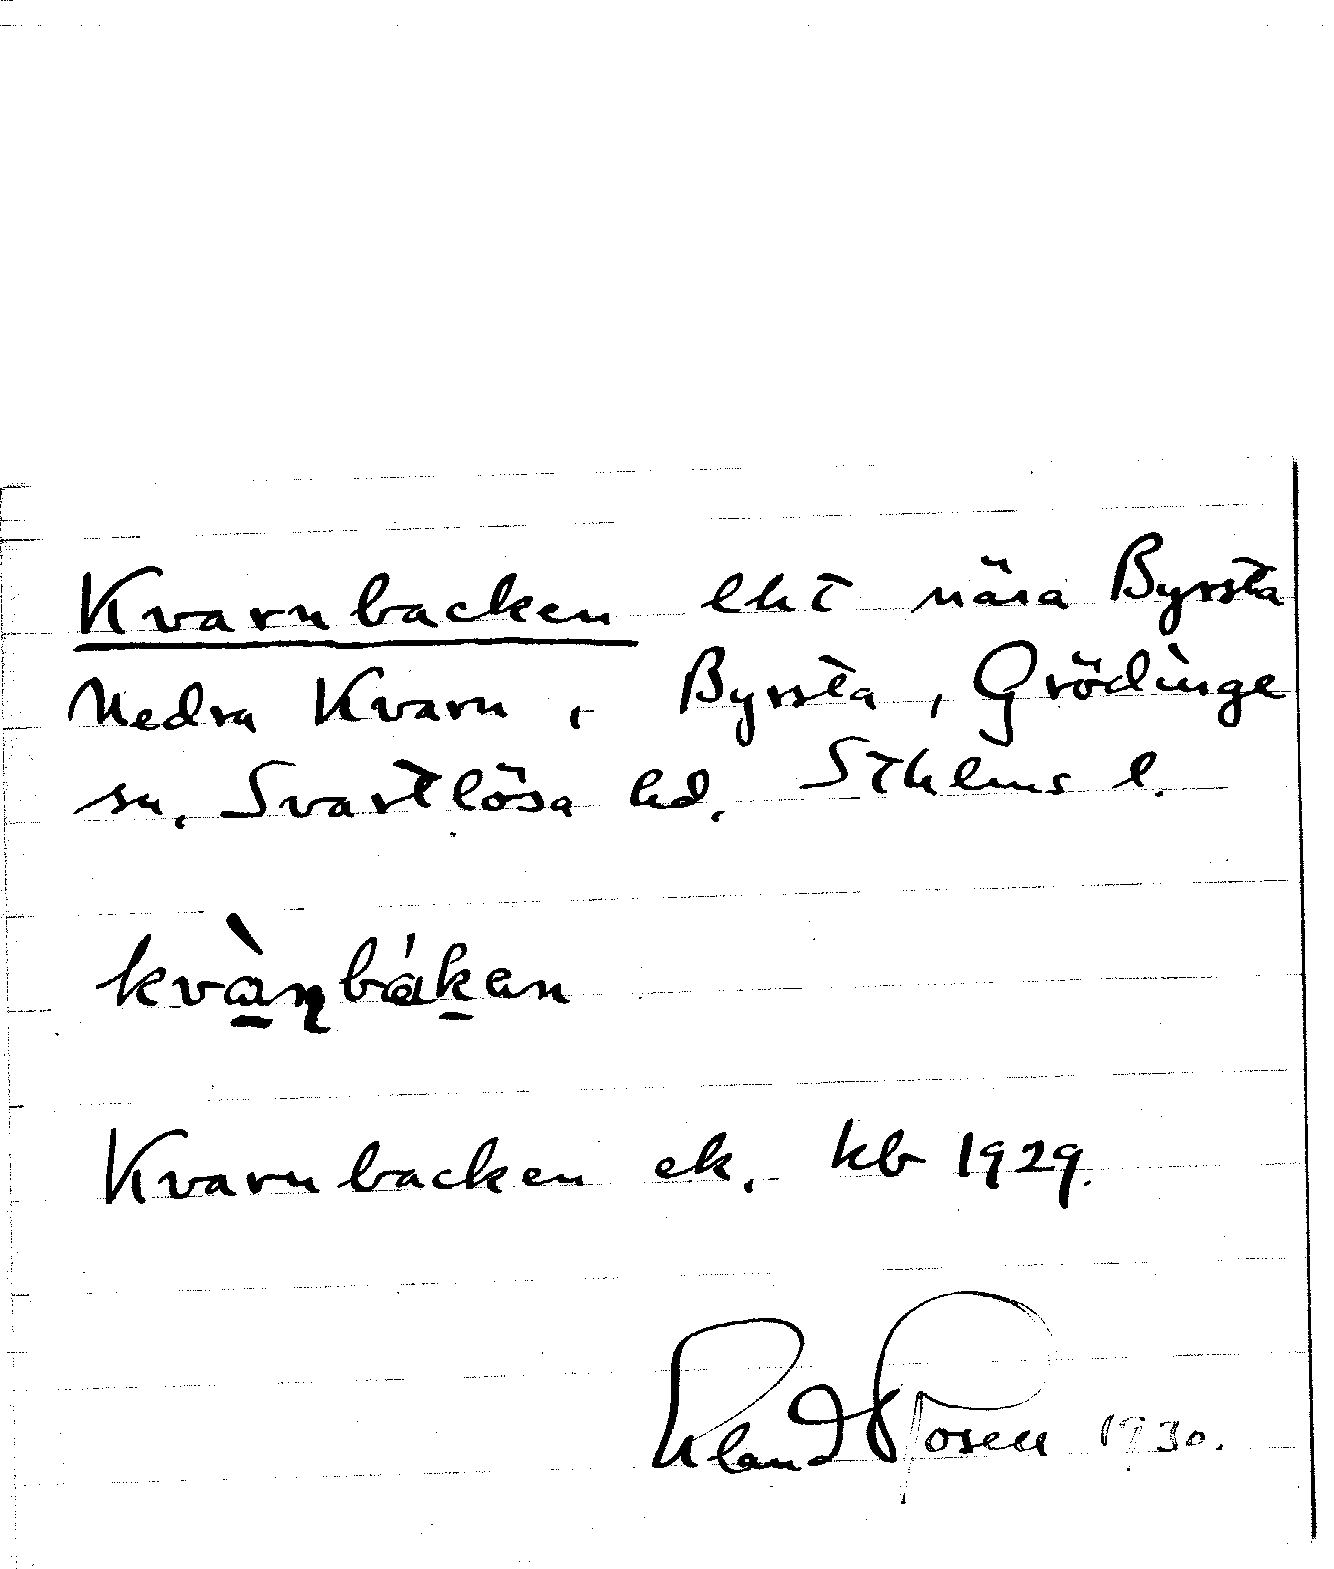 Kvarnbacken lht nära Byrsta
Nedra Kvarn, Byrsta, Grödinge
sn, Svartlösa hd, Sthlms l.
kvàɳbákan
Kvarnbacken ek. kb 1929.
Erland Rosell 1930.